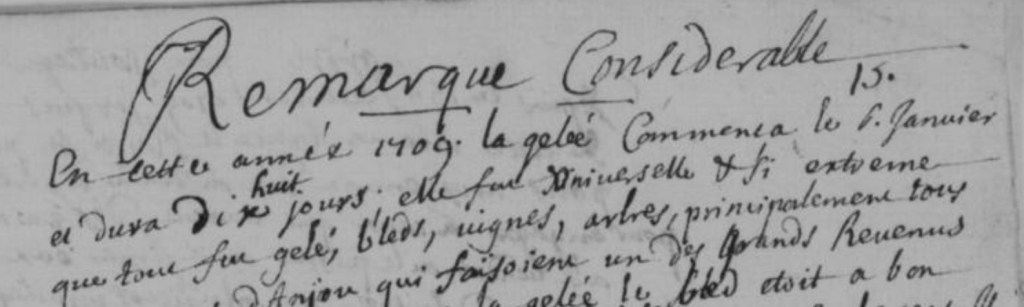 Remarque Considerable
15.
En cette année 1709. la gelée Commença le 6. Janvier
huit
et dura dix jours. elle fut Vniverselle & si extreme
que tout fut gelé, bleds, vignes, arbres, principalement tous
d'Anjou qui faisoient un des grands Revenus
la gelée le bled etoit a bon